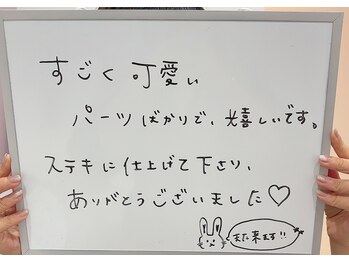 すごく可愛い
パーツばかりで、嬉しいです。
ステキに仕上げて下さり、
ありがとうございました♡
また来ます!!